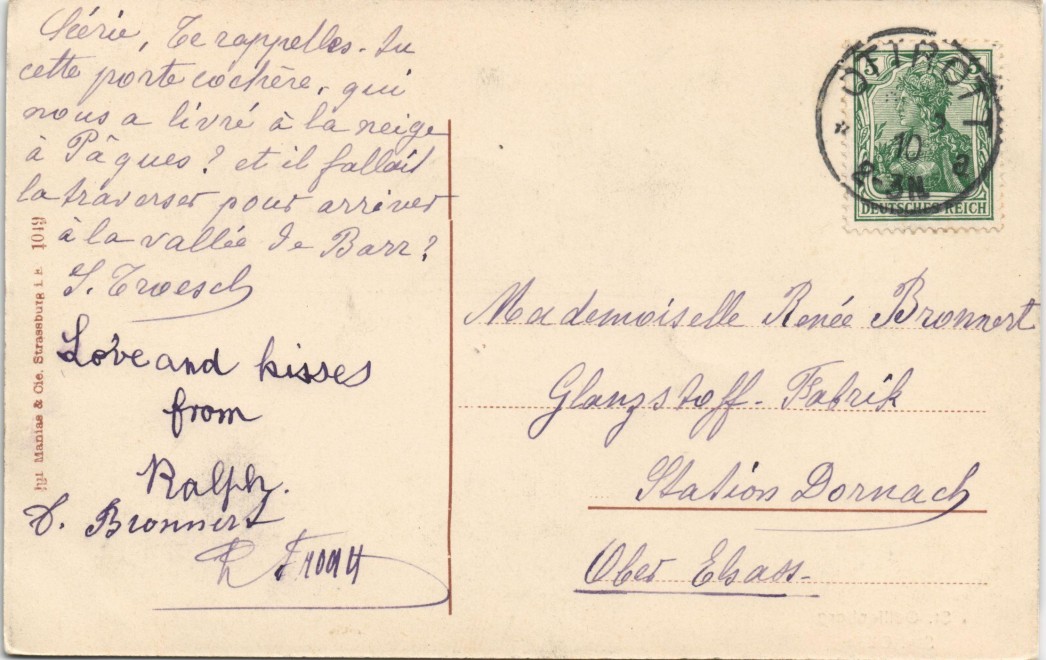 Chérie, Te rappelles-tu
cette porte cochère, qui
nous a livré à la neige
à Pâques? et il fallait
la traverser pour arriver
à la vallée de Barr?
S. Troesch
Love and kisses
from
Ralph.
Bronnert
Jul. Manias & Cie. Strassburg i. E. 1049
5 5
OTTROTT
10
2-3N
DEUTSCHES REICH
Mademoiselle Renée Bronnert
Glanzstoff-Fabrik
Station Dornach
Ober Elsass-